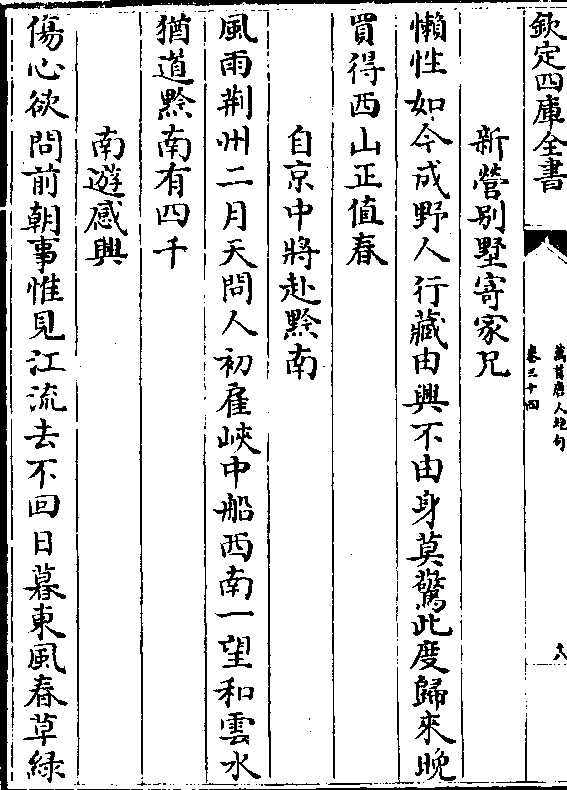 欽定四庫全書
萬首唐人絶句
卷三十四
新營别墅寄家兄
懶性如今成野人行藏由興不由身莫驚此度歸來晚
買得西山正值春
自京中將赴黔南
風雨荆州二月天問人初雇峽中船西南一望和雲水
猶道黔南有四千
南遊感興
傷心欲問前朝事惟見江流去不回日暮東風春草緑